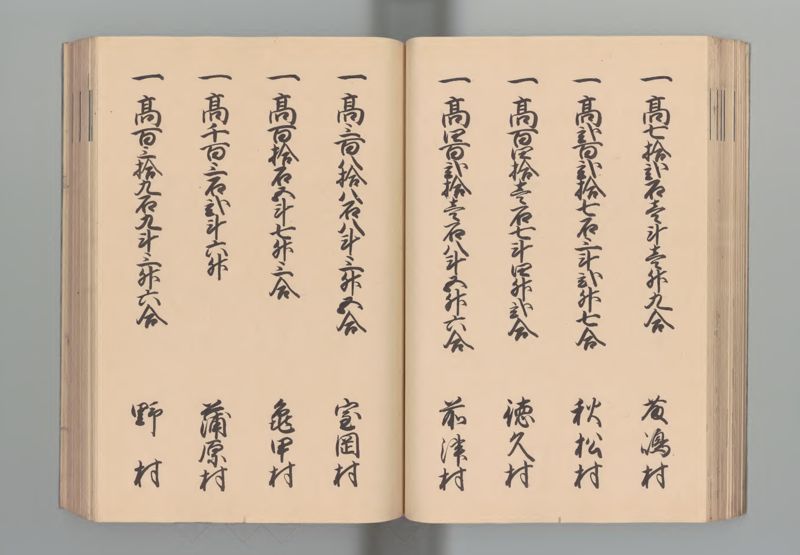 一高七拾弐石壱斗壱升九合 黄嶋村
一高弐百弐拾七石三斗弐升七合 秋松村
一高百四拾壱石七斗四升弐合 徳久村
一高四百弐拾壱石八斗五升六合 前津村
一高三百八拾八石八斗三升五合 室岡村
一高百拾石五斗七升三合 亀甲村
一高千百三石弐斗六升 蒲原村
一高百三拾九石九斗三升六合 野村